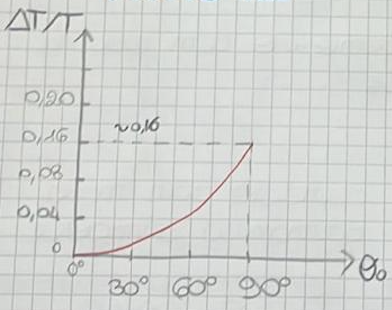 ΔT/T
0,20
~0,16
0,16
0,08
0,04
0
0° 30° 60° 90° θ₀